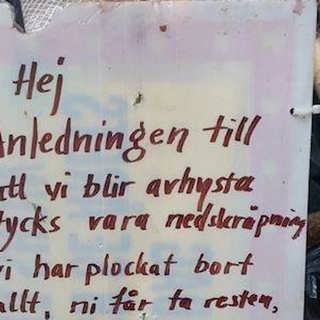 Hej
Anledningen till
att vi blir avhysta
tycks vara nedskräpning
vi har plockat bort
allt, ni får ta resten,